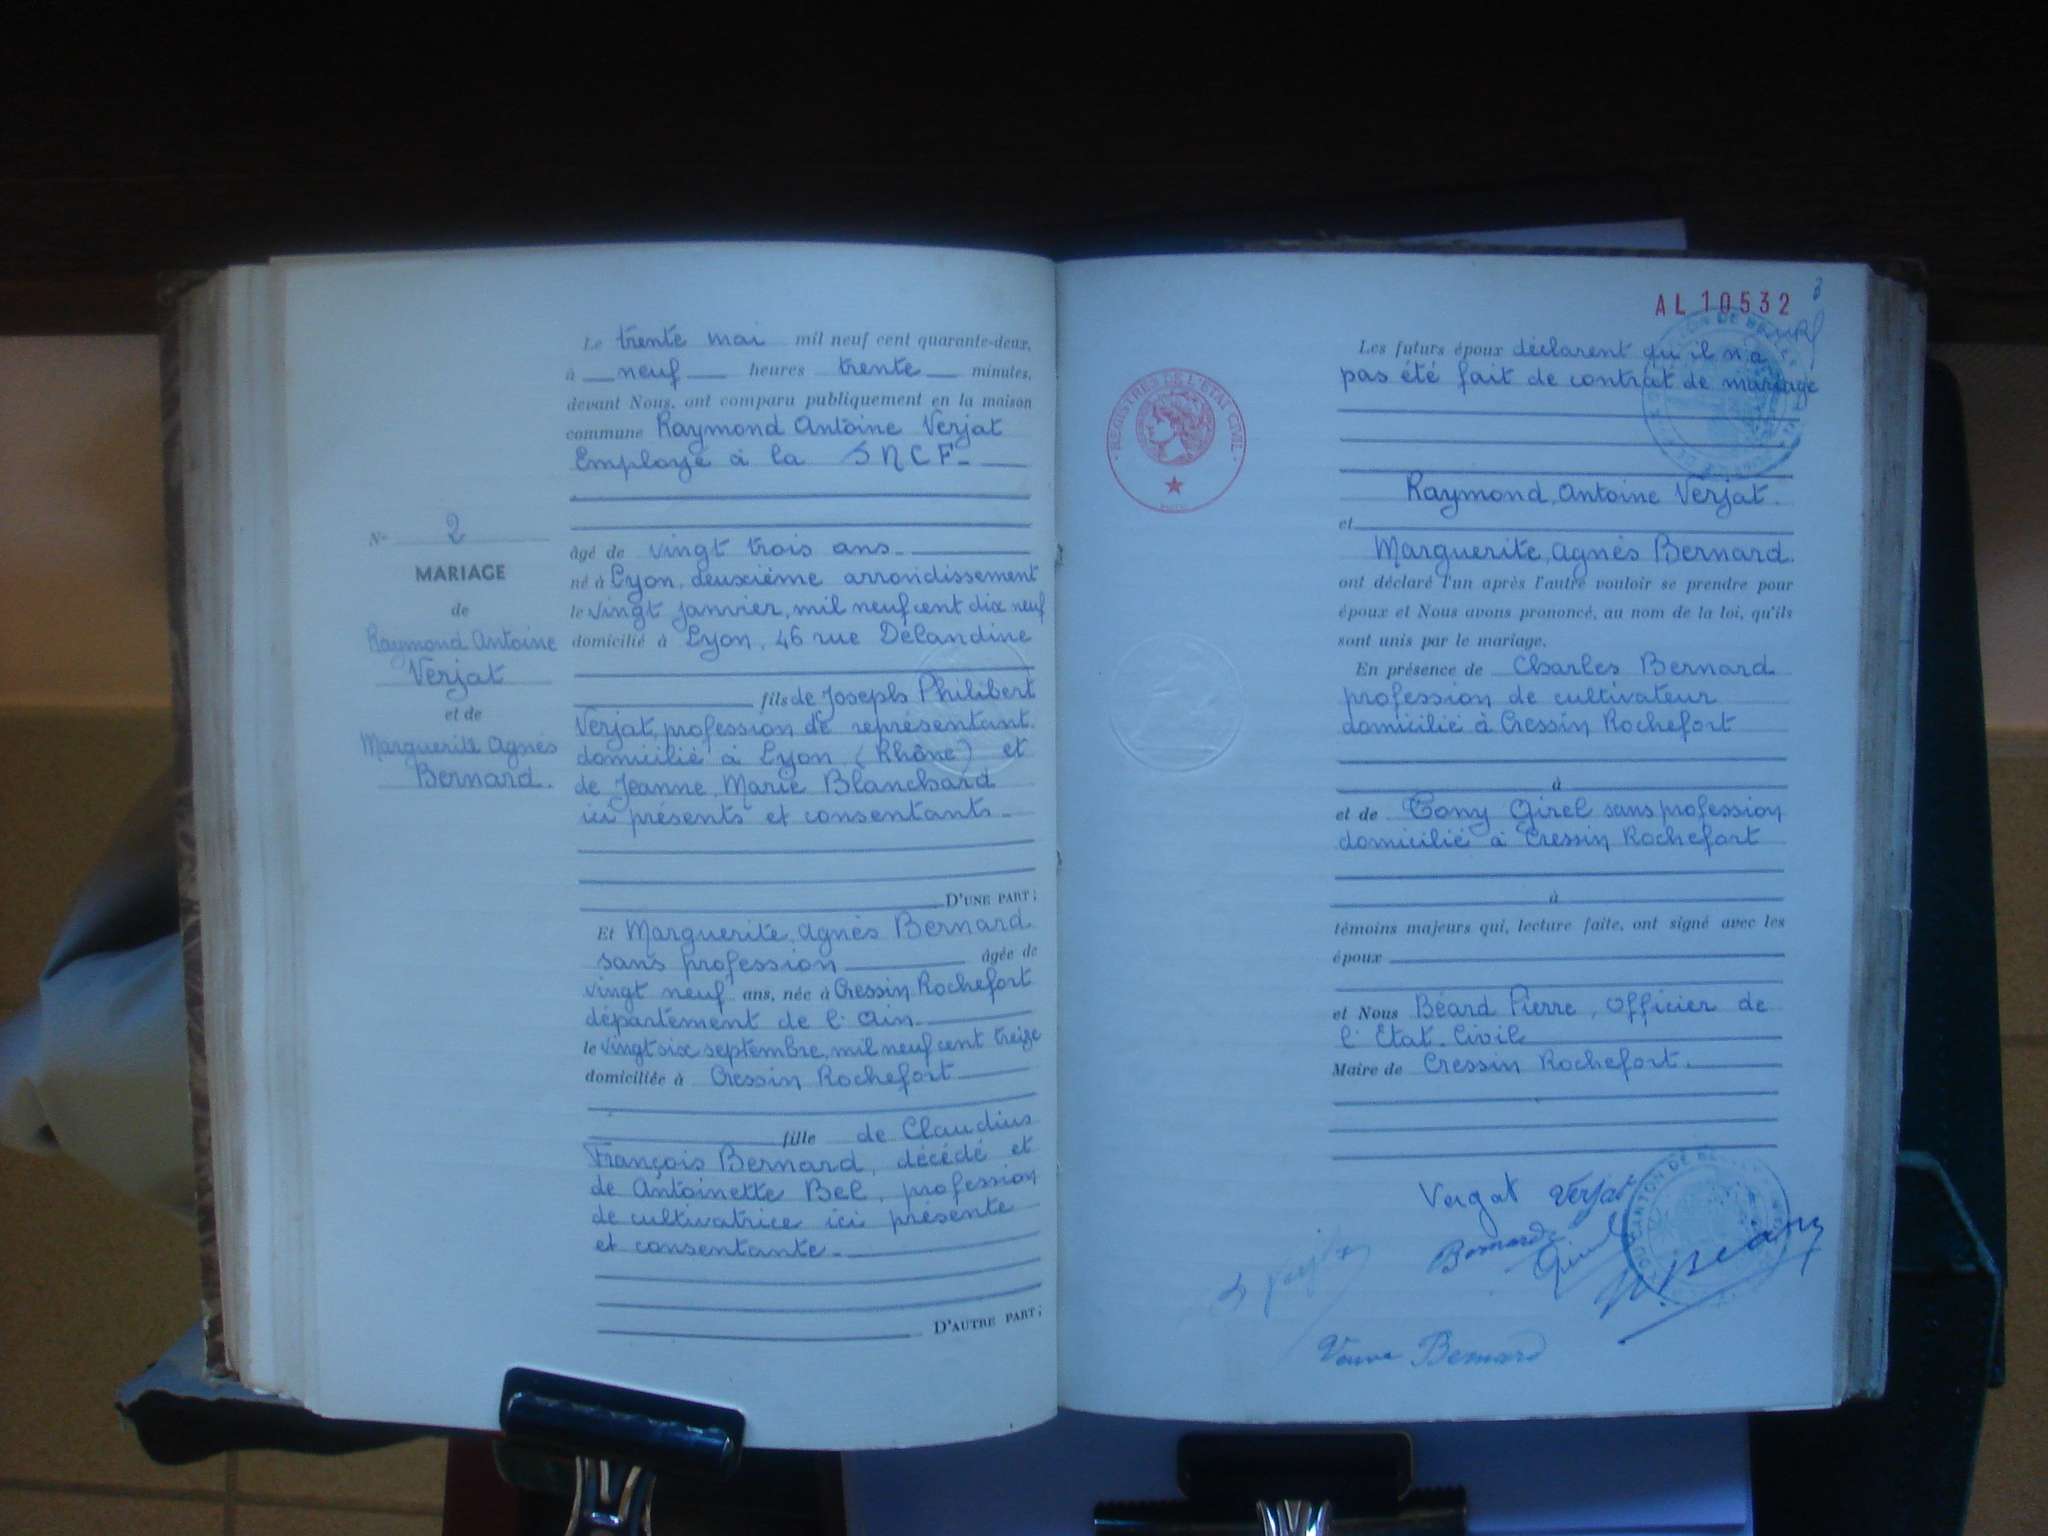 Le trente mai mil neuf cent quarante-deux,
à neuf heures trente minutes,
devant Nous, ont comparu publiquement en la maison
commune Raymond Antoine Verjat
Employé à la SNCF
N° 2
MARIAGE
de
Raymond Antoine
Verjat
et de
Marguerite Agnès
Bernard.
âgé de vingt trois ans
né à Lyon, deuxième arrondissement
le vingt janvier, mil neuf cent dix neuf
domicilié à Lyon, 46 rue Delandine
fils de Joseph Philibert
Verjat, profession de représentant
domicilié à Lyon (Rhône) et
de Jeanne, Marie Blanchard
ici présents et consentants
D'UNE PART ;
Et Marguerite, Agnès Bernard
sans profession âgée de
vingt neuf ans, née à Cressin Rochefort
département de l'Ain
le vingt six septembre, mil neuf cent treize
domiciliée à Cressin Rochefort
fille de Claudius
François Bernard, décédé et
de Antoinette Bel, profession
de cultivatrice ici présente
et consentante
D'AUTRE PART ;
AL 10532
Les futurs époux déclarent qu'il n'a
pas été fait de contrat de mariage
REGISTRES DE L'ÉTAT CIVIL
Raymond, Antoine Verjat.
et
Marguerite, Agnès Bernard.
ont déclaré l'un après l'autre vouloir se prendre pour
époux et Nous avons prononcé, au nom de la loi, qu'ils
sont unis par le mariage.
En présence de Charles Bernard
profession de cultivateur
domicilié à Cressin Rochefort
à
et de Tony Girel sans profession
domicilié à Cressin Rochefort
à
témoins majeurs qui, lecture faite, ont signé avec les
époux
et Nous Béard Pierre, Officier de
l'Etat-Civil
Maire de Cressin Rochefort.
Vergat Verjat
Bernard
Girel
Veuve Bernard